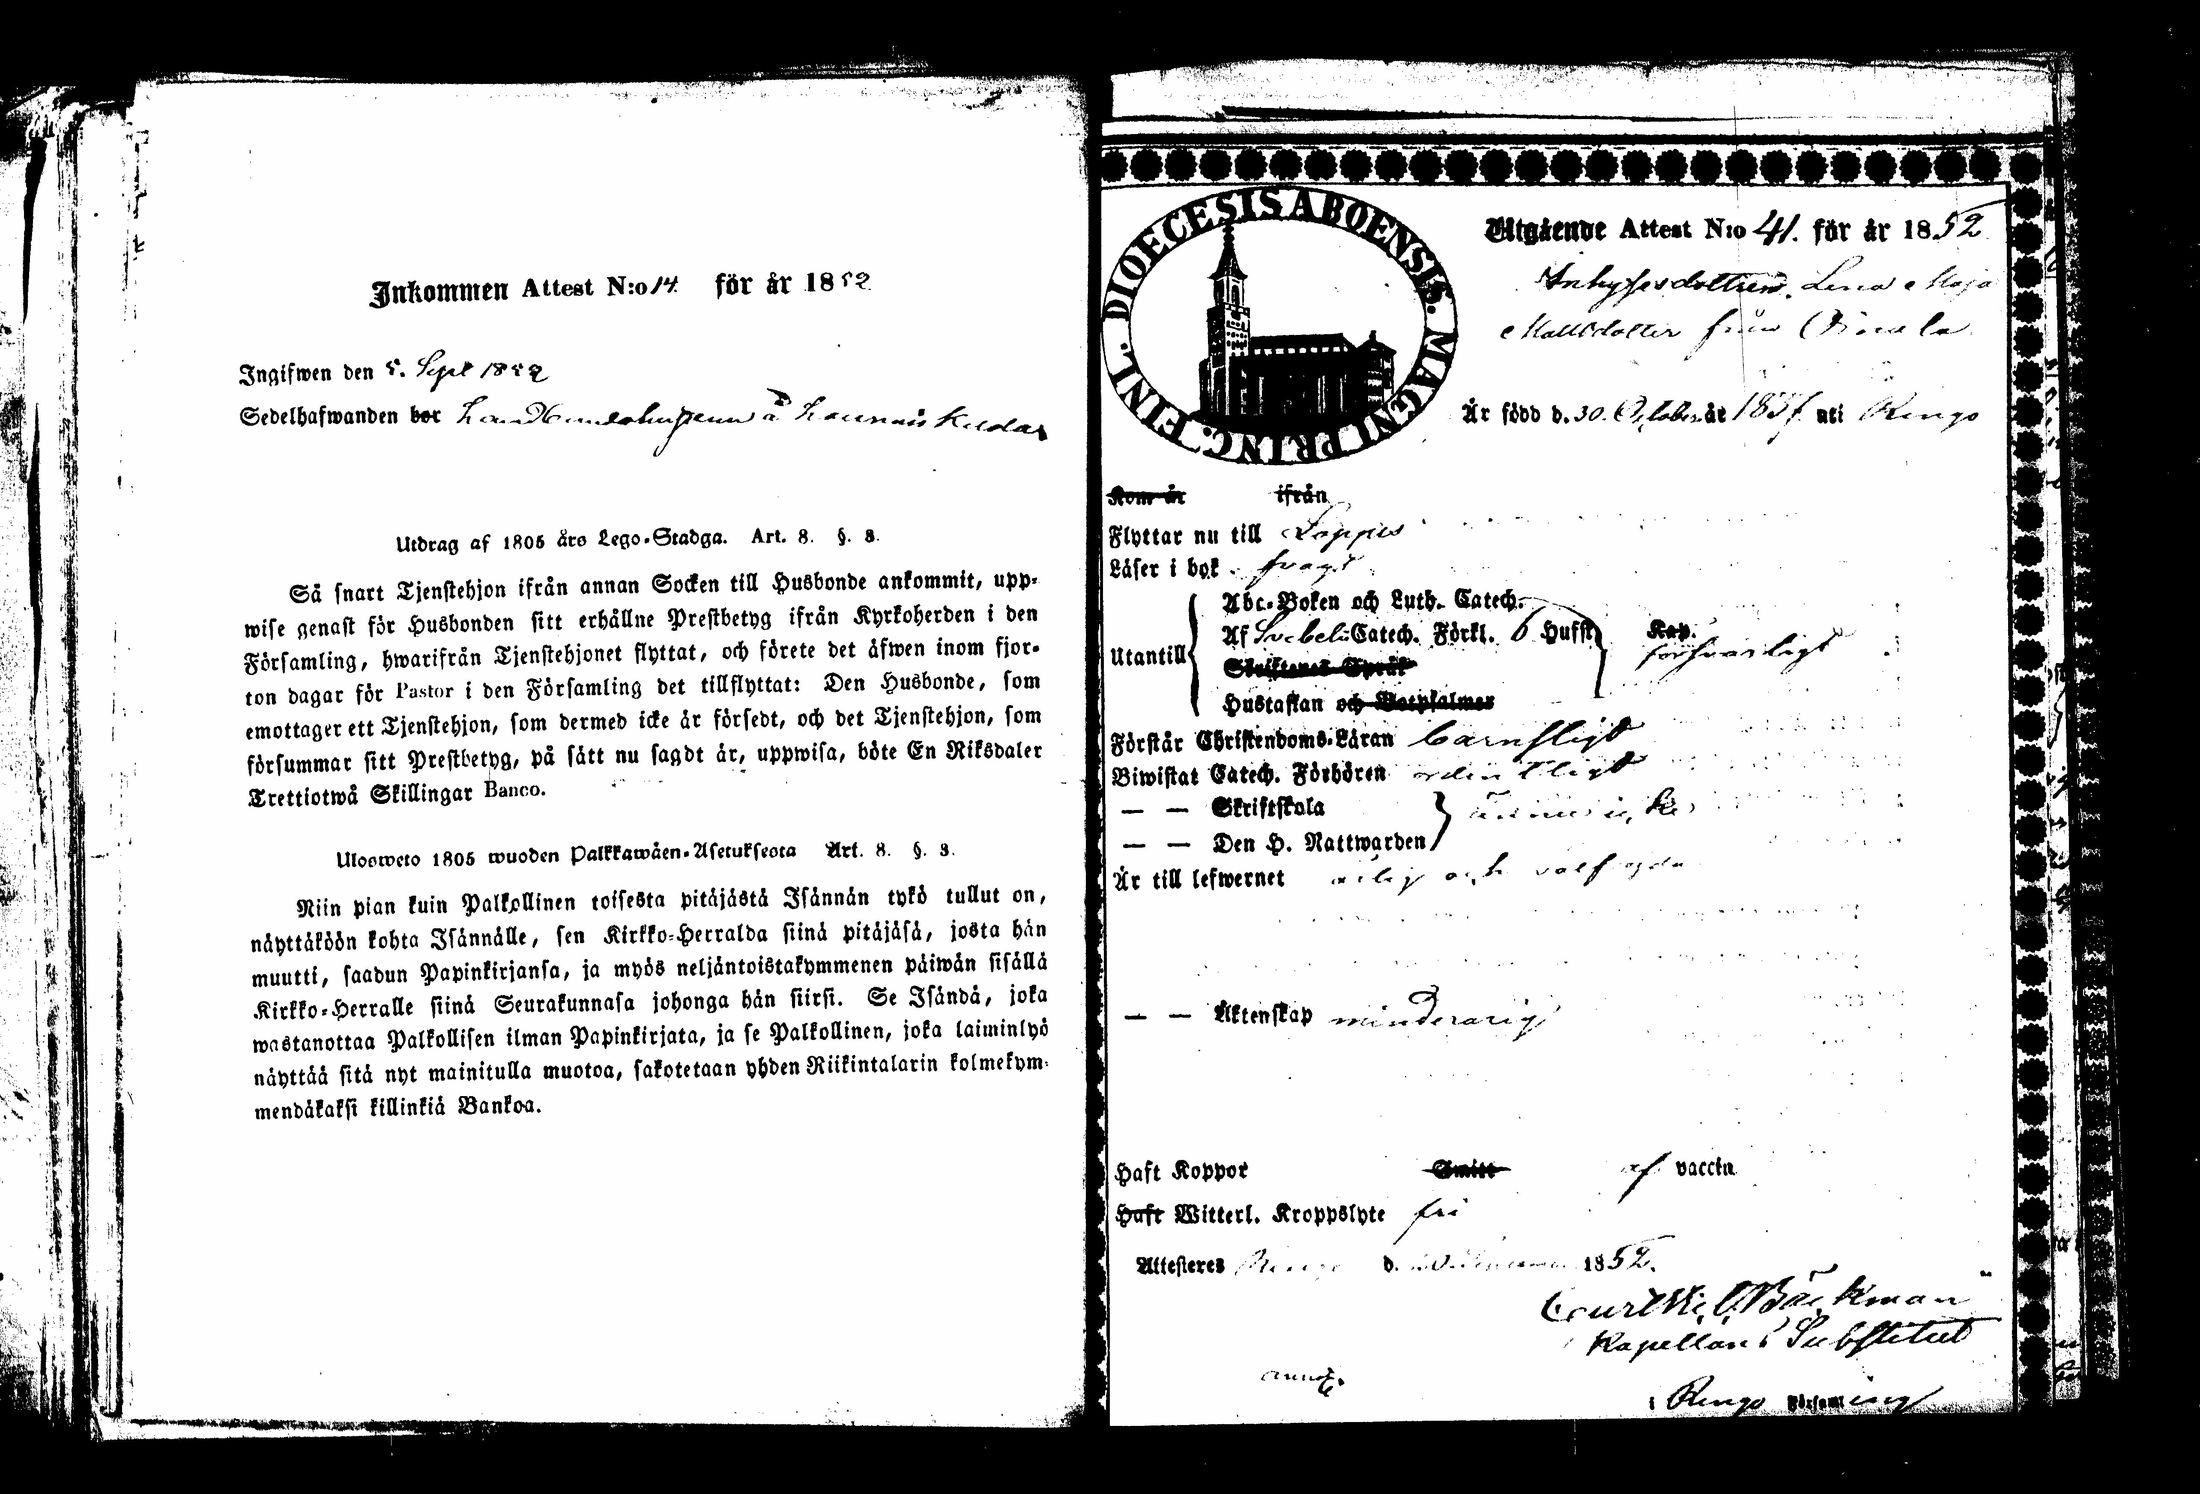 Inkommen Attest N:o 14 för år 1852
Ingifwen den 5. Sept 1852
Sedelhafwanden bor å
Utdrag af 1805 års Lego-Stadga. Art. 8. §. 3.
Så snart Tjenstehjon ifrån annan Socken till Husbonde ankommit, upp-
wise genast för Husbonden sitt erhållne Prestbetyg ifrån Kyrkoherden i den
Församling, hwarifrån Tjenstehjonet flyttat, och förete det äfwen inom fjor-
ton dagar för Pastor i den Församling det tillflyttat: Den Husbonde, som
emottager ett Tjenstehjon, som dermed icke är försedt, och det Tjenstehjon, som
försummar sitt Prestbetyg, på sätt nu sagdt är, uppwisa, böte En Riksdaler
Trettiotwå Skillingar Banco.
Ulosweto 1805 wuoden Palkkawäen-Asetuksesta Art. 8. §. 3.
Niin pian kuin Palkollinen toisesta pitäjästä Isännän tykö tullut on,
näyttäköön kohta Isännälle, sen Kirkko-Herralda siinä pitäjäsä, josta hän
muutti, saadun Papinkirjansa, ja myös neljäntoistakymmenen päiwän sisällä
Kirkko-Herralle siinä Seurakunnasa johonga hän siirsi. Se Isändä, joka
wastanottaa Palkollisen ilman Papinkirjata, ja se Palkollinen, joka laiminlyö
näyttää sitä nyt mainitulla muotoa, sakotetaan yhden Riikintalarin kolmekym-
mendäkaksi killinkiä Bankoa.
DIOECESIS ABOENSIS. MAGNI PRINC. FINL.
Utgående Attest N:o 41. för år 1852
Inhysesdottren Lena Maja
Mattsdotter från
Är född d. 30. October år 1837 uti Rengo
Kom år ifrån
Flyttar nu till Loppis
Läser i bok svagt
Utantill
Abc-Boken och Luth. Catech.
Af Svebeli Catech. Förkl. 6 Hufst. Kap.
försvarligt
Skriftenes Språk
Hustaflan och Botpsalmer
Förstår Christendoms-Läran barnsligt
Biwistat Catech. Förhören ordentligt
— — Skriftskola ännu icke
— — Den H. Nattwarden
Är till lefwernet ärlig och välfrejdad
— — Äktenskap minderårig
Haft Koppor Smitt af vaccin
Haft Witterl. Kroppslyte fri
Attesteres Rengo d. 1852.
Bäckman
Kapellans Substitut
annot.
i Rengo Församling